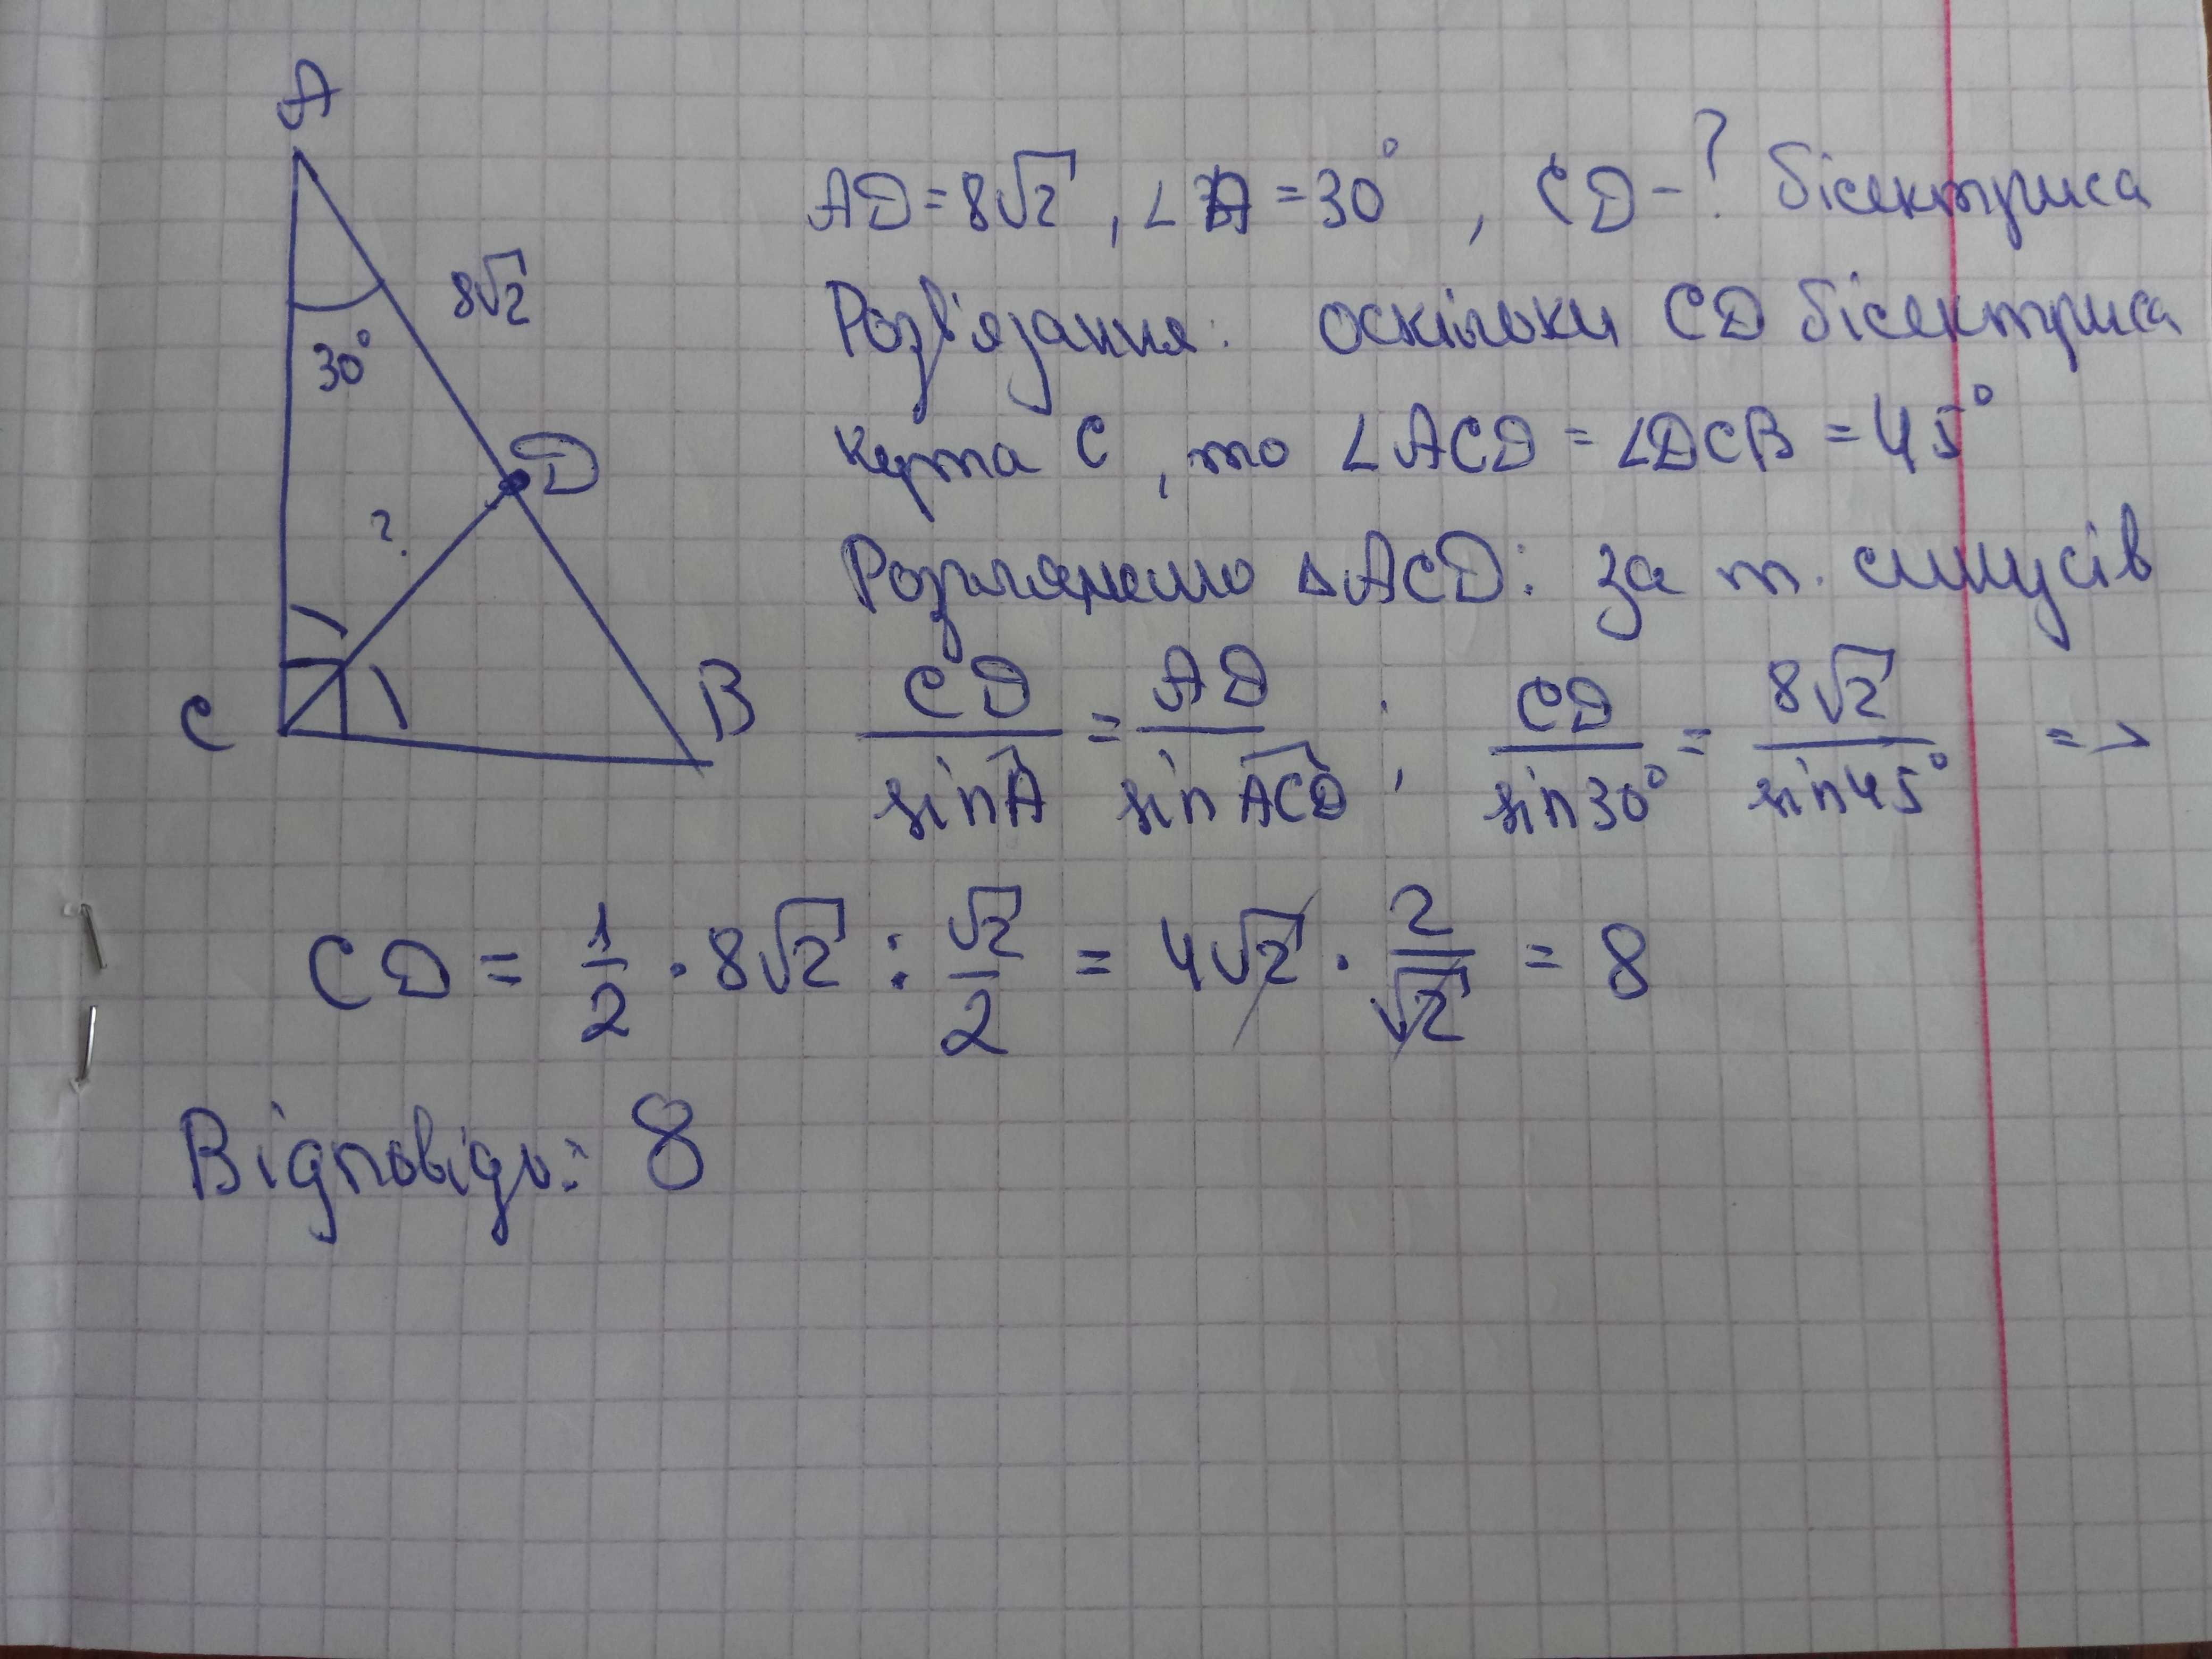 A
AD = 8√2, ∠A = 30°, CD - ? бісектриса
8√2
Розв'язання: оскільки CD бісектриса
30°
кута C, то ∠ACD = ∠DCB = 45°
D
?
Розглянемо △ACD: за т. синусів
C
B
CD/sin Â = AD/sin ACD ; CD/sin30° = 8√2/sin45° =>
CD = 1/2 · 8√2 : √2/2 = 4√2 · 2/√2 = 8
Відповідь: 8